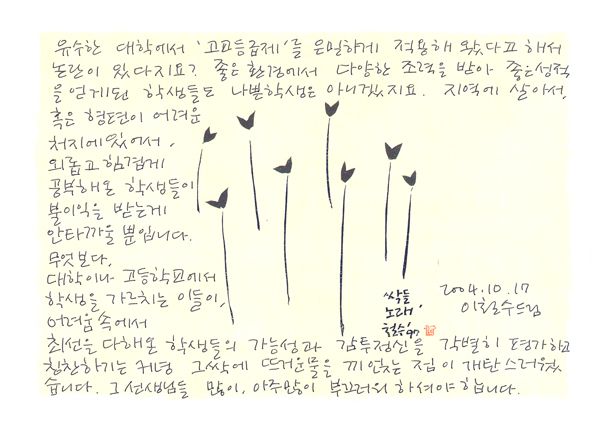 유수한 대학에서 '고교등급제'를 은밀하게 적용해 왔다고 해서
논란이 있다지요? 좋은 환경에서 다양한 조력을 받아 좋은성적
을 얻게된 학생들도 나쁜학생은 아니겠지요. 지역에 살아서,
혹은 형편이 어려운
처지에있어서,
외롭고 힘겹게
공부해온 학생들이
불이익을 받는게
안타까울 뿐입니다.
무엇보다,
대학이나 고등학교에서
학생을 가르치는 이들이,
어려움속에서
최선을 다해온 학생들의 가능성과 감투정신을 각별히 평가하고
칭찬하기는 커녕 그싹에 뜨거운물을 끼얹는 점이 개탄스러웠
습니다. 그선생님들 많이, 아주많이 부끄러워 하셔야 합니다.
싹들
노래'
철수 '97
2004.10.17
이철수드림